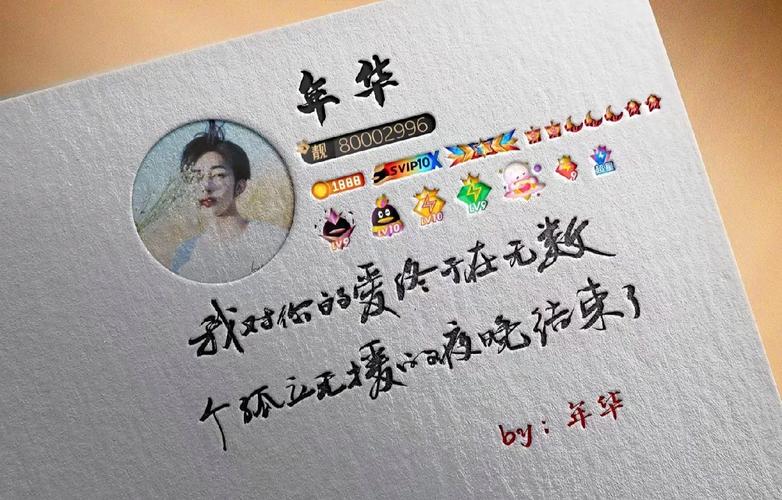 年华
靓 80002996
1888 SVIP10
LV9 LV10 LV10 LV9 9 超星
我对你的爱终于在无数
个孤立无援的夜晚结束了
by：年华